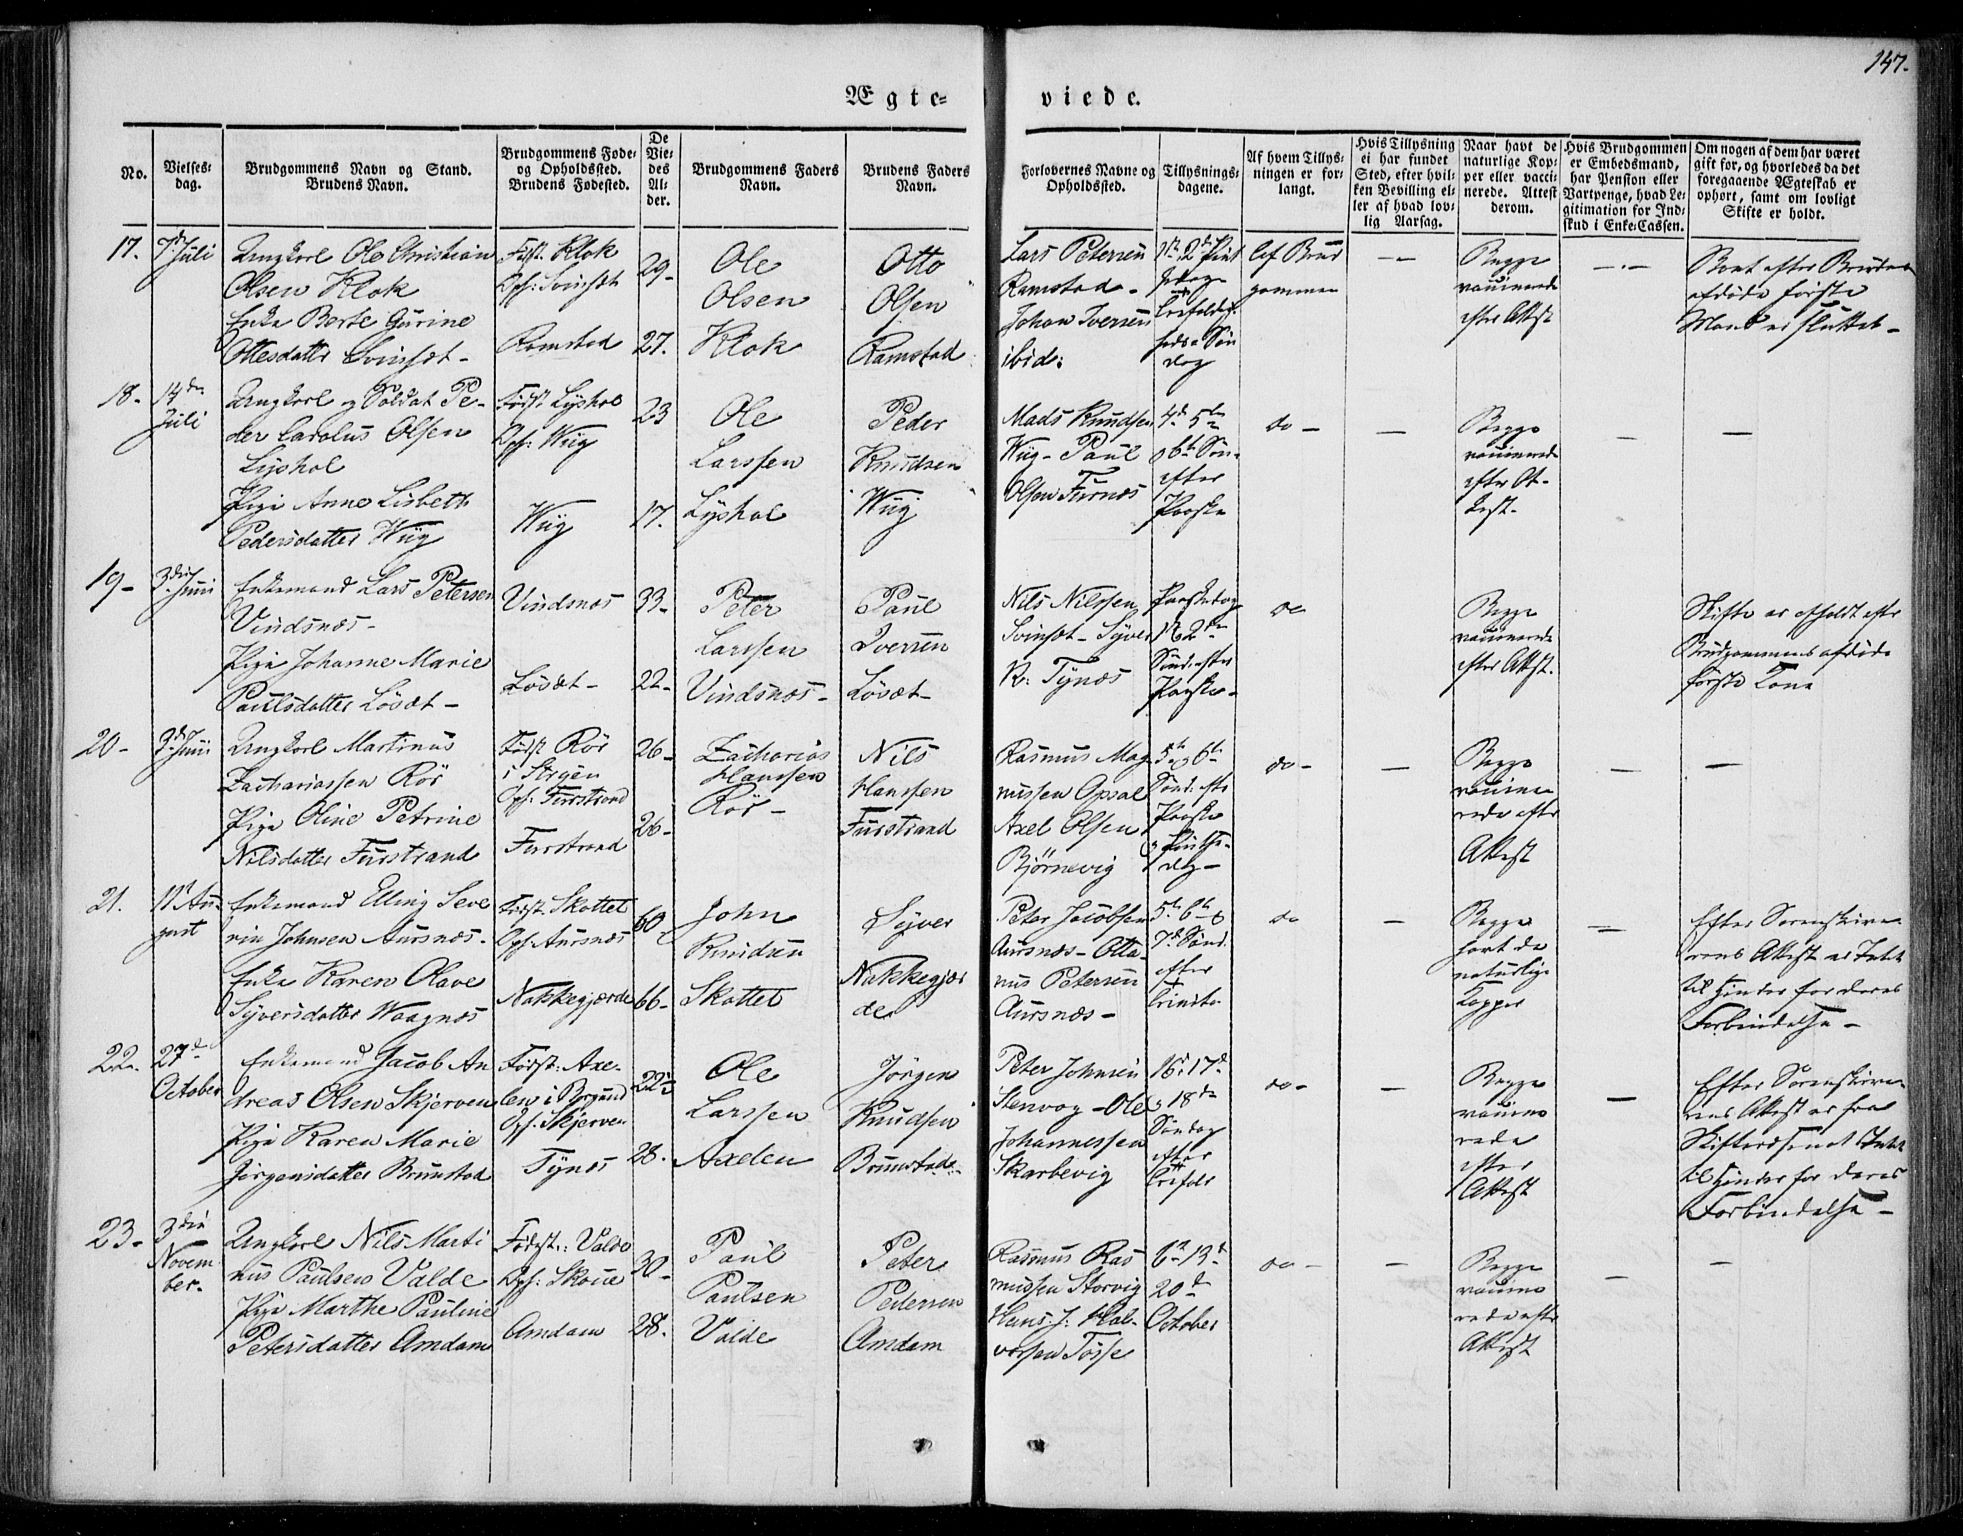 147.
Ægte-
viede.
No.
Vielses-
dag.
Brudgommens Navn og Stand.
Brudens Navn.
Brudgommens Føde-
og Opholdssted.
Brudens Fødested.
De
Vie-
des
Al-
der.
Brudgommens Faders
Navn.
Brudens Faders
Navn.
Forlovernes Navne og
Opholdssted.
Tillysnings-
dagene.
Af hvem Tillys-
ningen er for-
langt.
Hvis Tillysning
ei har fundet
Sted, efter hvil-
ken Bevilling el-
ler af hvad lov-
lig Aarsag.
Naar havt de
naturlige Kop-
per eller vacci-
nerede. Attest
derom.
Hvis Brudgommen
er Embedsmand,
har Pension eller
Vartpenge, hvad Le-
gitimation for Ind-
skud i Enke-Cassen.
Om nogen af dem har været
gift før, og hvorledes da det
foregaaende Ægteskab er
ophørt, samt om lovligt
Skifte er holdt.
17.
7de Juli
Ungkarl Ole Christian
Olsen Klok
Enke Berte Gurine
Ottesdatter Svinset -
Født: Klok
Oph: Svinset
Ramstad
29-
27.
Ole
Olsen
Klok
Otto
Olsen
Ramstad
Lars Petersen
Ramstad -
Johan Iversen
ibid:
1ste 2den Pint
sedag
Trefoldig-
heds Søn
dag
Af Brud
gommen
Begge
vaccinerede
efter Attest
Boet efter Brudens
afdøde første
Mand er sluttet -
18.
14de
Juli
Ungkarl og Soldat Pe-
der Carolus Olsen
Lyshol
Pige Anne Lisbeth
Pedersdatter Wiig
Født Lyshol
Oph: Wiig
Wiig
23
17.
Ole
Larssen
Lyshol
Peder
Knudsen
Wiig
Mads Knudsen
Wiig - Paul
Olsen Furnæs
4de 5te
o 6te Søn-
efter
Paaske
do -
Begge
vaccinerede
efter At-
test.
19-
3die Juni
Enkemand Lars Petersen
Vindsnæs -
Pige Johanne Marie
Paulsdatter Løset -
Vindsnæs
Løset -
33-
22-
Peter
Larssen
Vindsnæs -
Paul
Iversen
Løset -
Nils Nilssen
Svinset - Syver
R: Tynæs
Paaskedag
1ste 2den
Sønd: efter
Paaske -
do
Begge
vaccinerede
efter Attest.
Skifte er afholdt efter
Brudgommens afdøde
første Kone
20-
3die Juni
Ungkarl Martinus
Zachariassen Rør
Pige Oline Petrine
Nilsdatter Furstrand
Født Rør
i Stryen
Oph: Furstrand
Furstrand
26-
26-
Zacharias
Hanssen
Rør -
Nils
Hanssen
Furstrand
Rasmus Mag
nussen Opsal
Axel Olsen
Bjørnevig
5te o 6te
Sønd: efter
Paaske
o Pintse-
dag -
do -
Begge
vaccine
rede efter
Attest
21.
11te Au-
gust
Enkemand Elling Seve
rin Johnsen Aursnæs -
Enke Karen Olave
Syversdatter Waagnæs
Født: Skottet
Oph: Aursnæs
Nakkegjærde
60
66-
John
Knudsen
Skottet
Syver
Nakkegjær
de
Peter Jacobsen
Aursnæs - Otta
nus Petersen
Aursnæs -
5te 6te o
7de Sønd
efter
Trinita
do
Begge
havt de
naturlige
Kopper
Efter Sorenskrive
rens Attest er Intet
til Hinder for deres
Forbindelse -
22.
27de
October
Enkemand Jacob An
dreas Olsen Skjerven
Pige Karen Marie
Jørgensdatter Brunstad
Født: Axe-
len i Borgund
Oph: Skjerven
Tynæs
28.
Ole
Larssen
Axelen
Jørgen
Knudsen
Brunstad -
Peter Johnsen
Stenvog - Ole
Johannessen
Skarbevig
16de 17de
o 18de
Søndag
efter
Trefold:
do -
Begge
vaccine
rede
efter
Attest
Efter Sorenskrive-
rens Attest er fra
Skifteræsenet Intet
til Hinder for deres
Forbindelse -
23-
3die
Novem
ber.
Ungkarl Nils Marti
nus Paulsen Valde
Pige Marthe Pauline
Petersdatter Amdam
Fødest: Valde
Oph: Skoue
Amdam
30-
28.
Paul
Paulsen
Valde
Peter
Pedersen
Amdam
Rasmus Ras
mussen Storvig
Hans J: Hal-
vorsen Tøsse
6te 13de
20de
October
do -
Begge
vaccine
rede efter
Attest